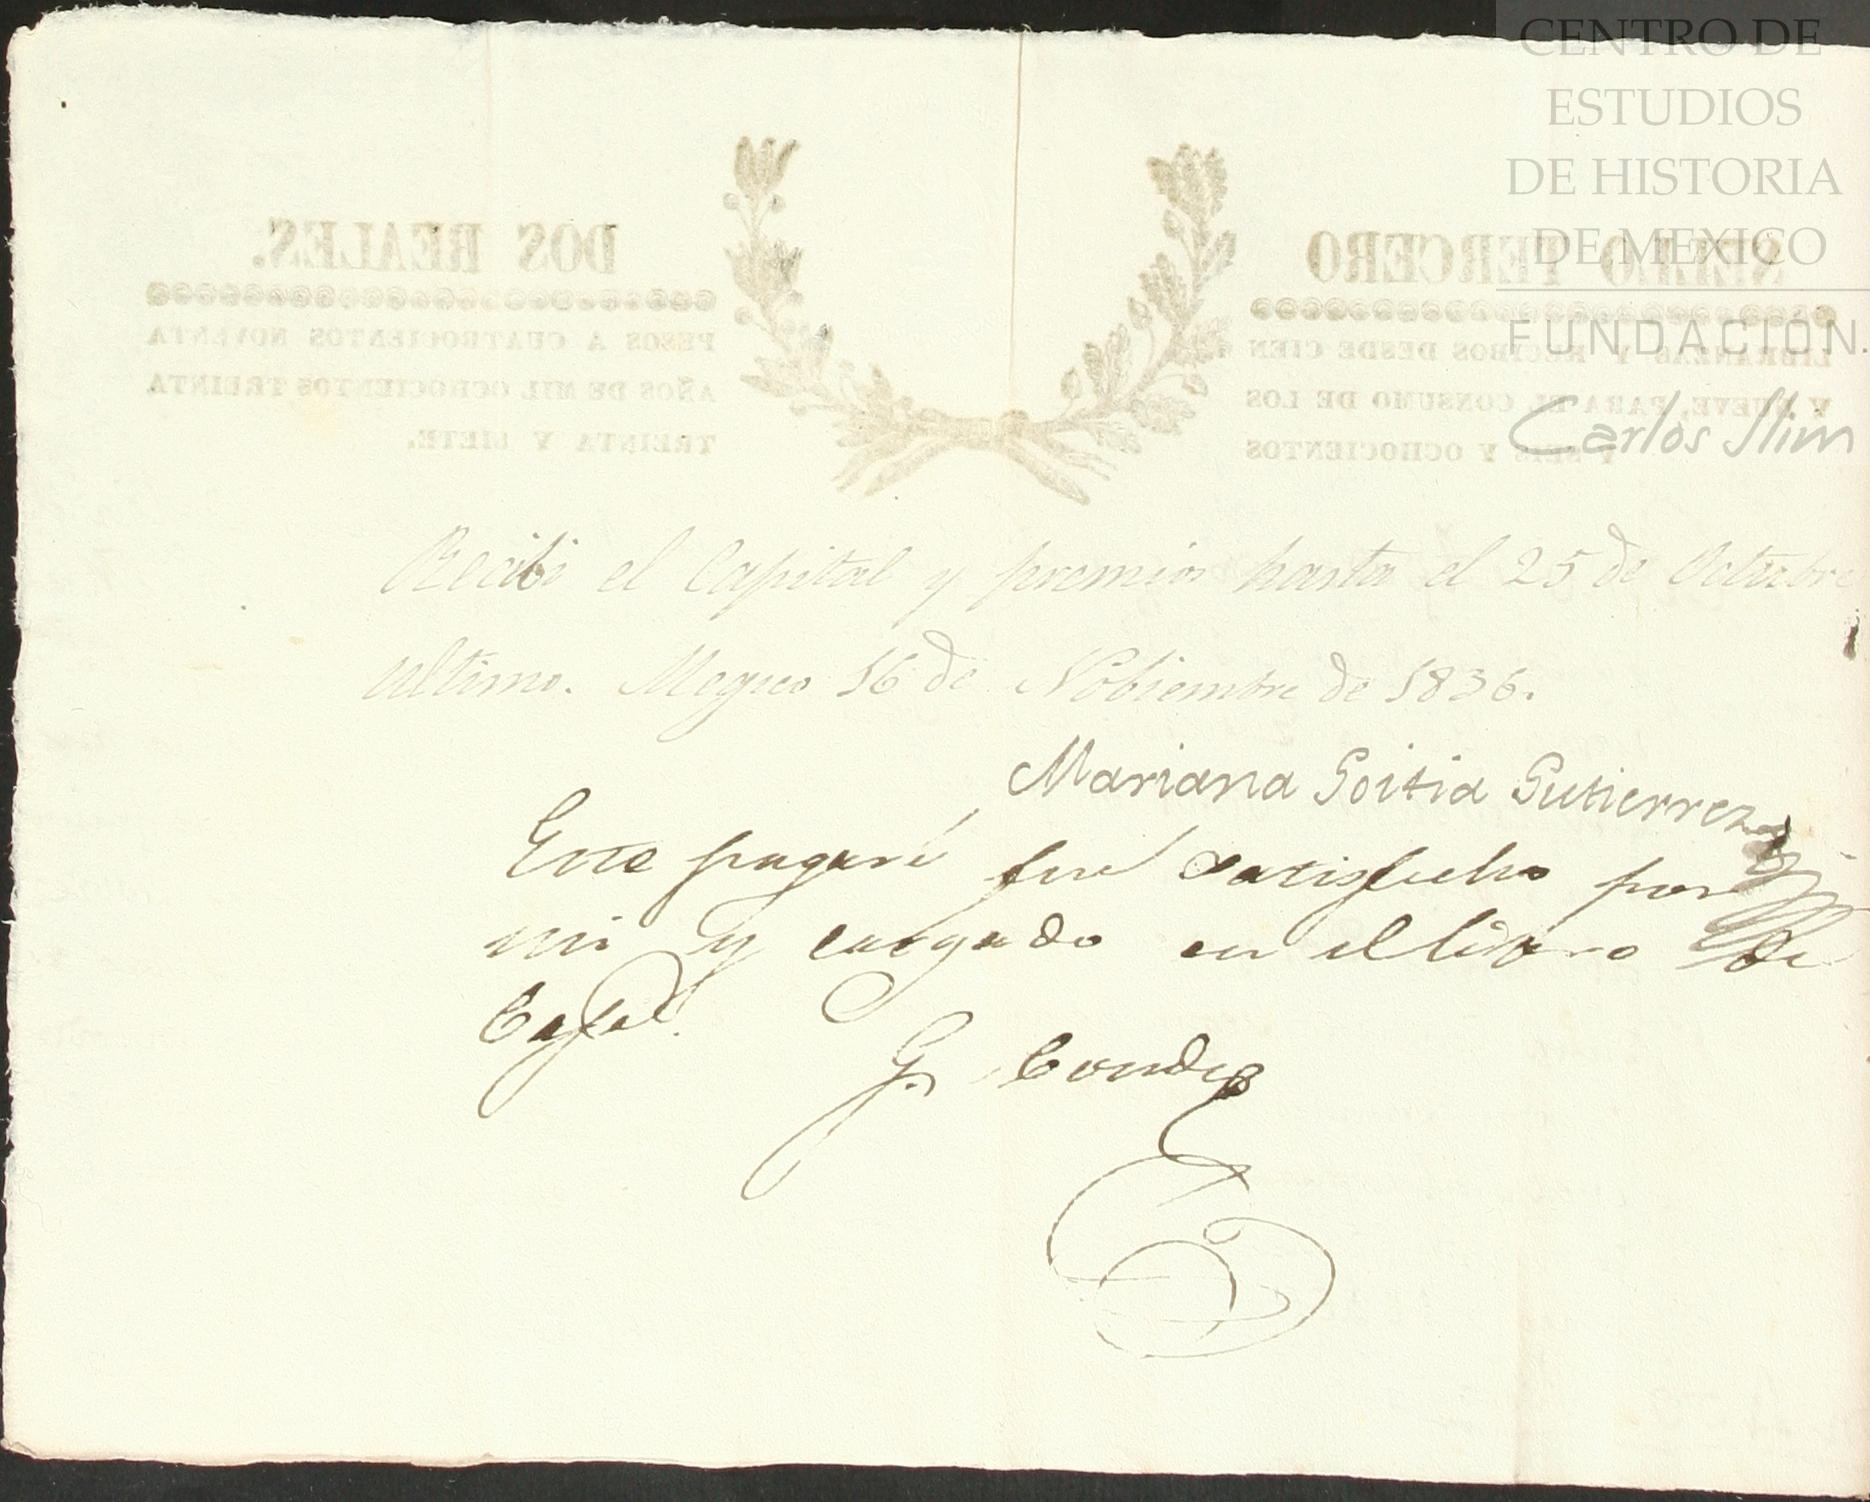 CENTRO DE
ESTUDIOS
DE HISTORIA
DE MEXICO
FUNDACIÓN.
Carlos Slim
SELLO TERCERO
DOS REALES.
LIBRANZAS Y RECIBOS DESDE CIEN
PESOS A CUATROCIENTOS NOVENTA
Y NUEVE, PARA EL CONSUMO DE LOS
AÑOS DE MIL OCHOCIENTOS TREINTA
Y SEIS Y OCHOCIENTOS
TREINTA Y SIETE.
Recibi el Capital y premios hasta el 25 de Octubre
ultimo. Megico 16 de Nobiembre de 1836.
Mariana Goitia Gutierrez
Este pagaré fué satisfecho por
mi y cargado en el libro de
Caja.
G. Conde